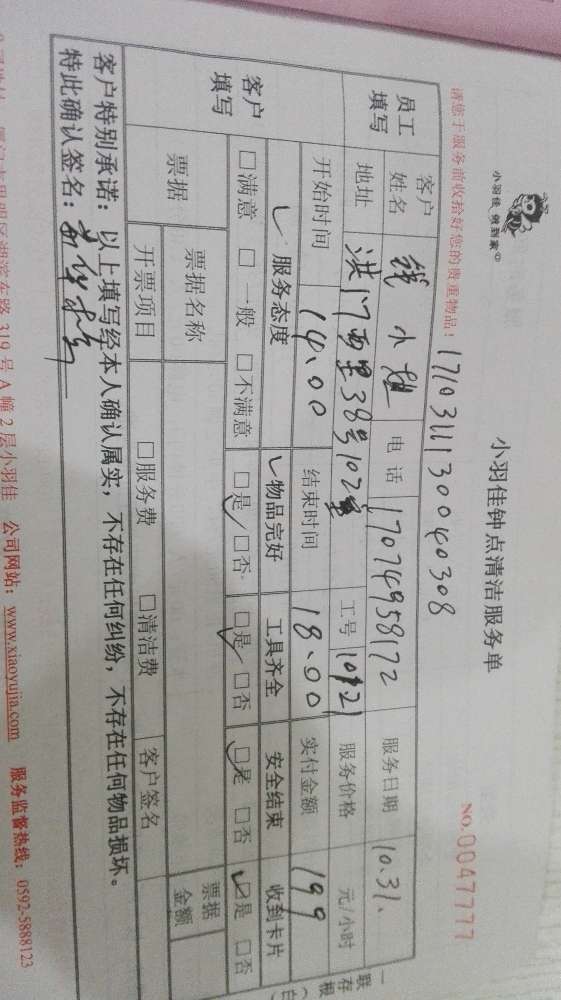 小羽佳 做到家
小羽佳钟点清洁服务单
NO.0047777
请您于服务前收拾好您的贵重物品!
1710311130040308
员工填写
客户姓名 钱小姐 电话 17074958172 服务日期 10.31.
地址 洪门西里38号102室 工号 10921 服务价格 元/小时
开始时间 14.00 结束时间 18.00 实付金额 199
客户填写
服务态度 物品完好 工具齐全 安全结束 收到卡片
□满意 □一般 □不满意 □是 □否 □是 □否 □是 □否 □是 □否
票据 票据名称 票据金额
开票项目 □服务费 □清洁费 客户签名
客户特别承诺:以上填写经本人确认属实,不存在任何纠纷,不存在任何物品损坏。
特此确认签名:
319号A幢2层小羽佳 公司网站:www.xiaoyujia.com 服务监督热线:0592-5888123
一联存根(白